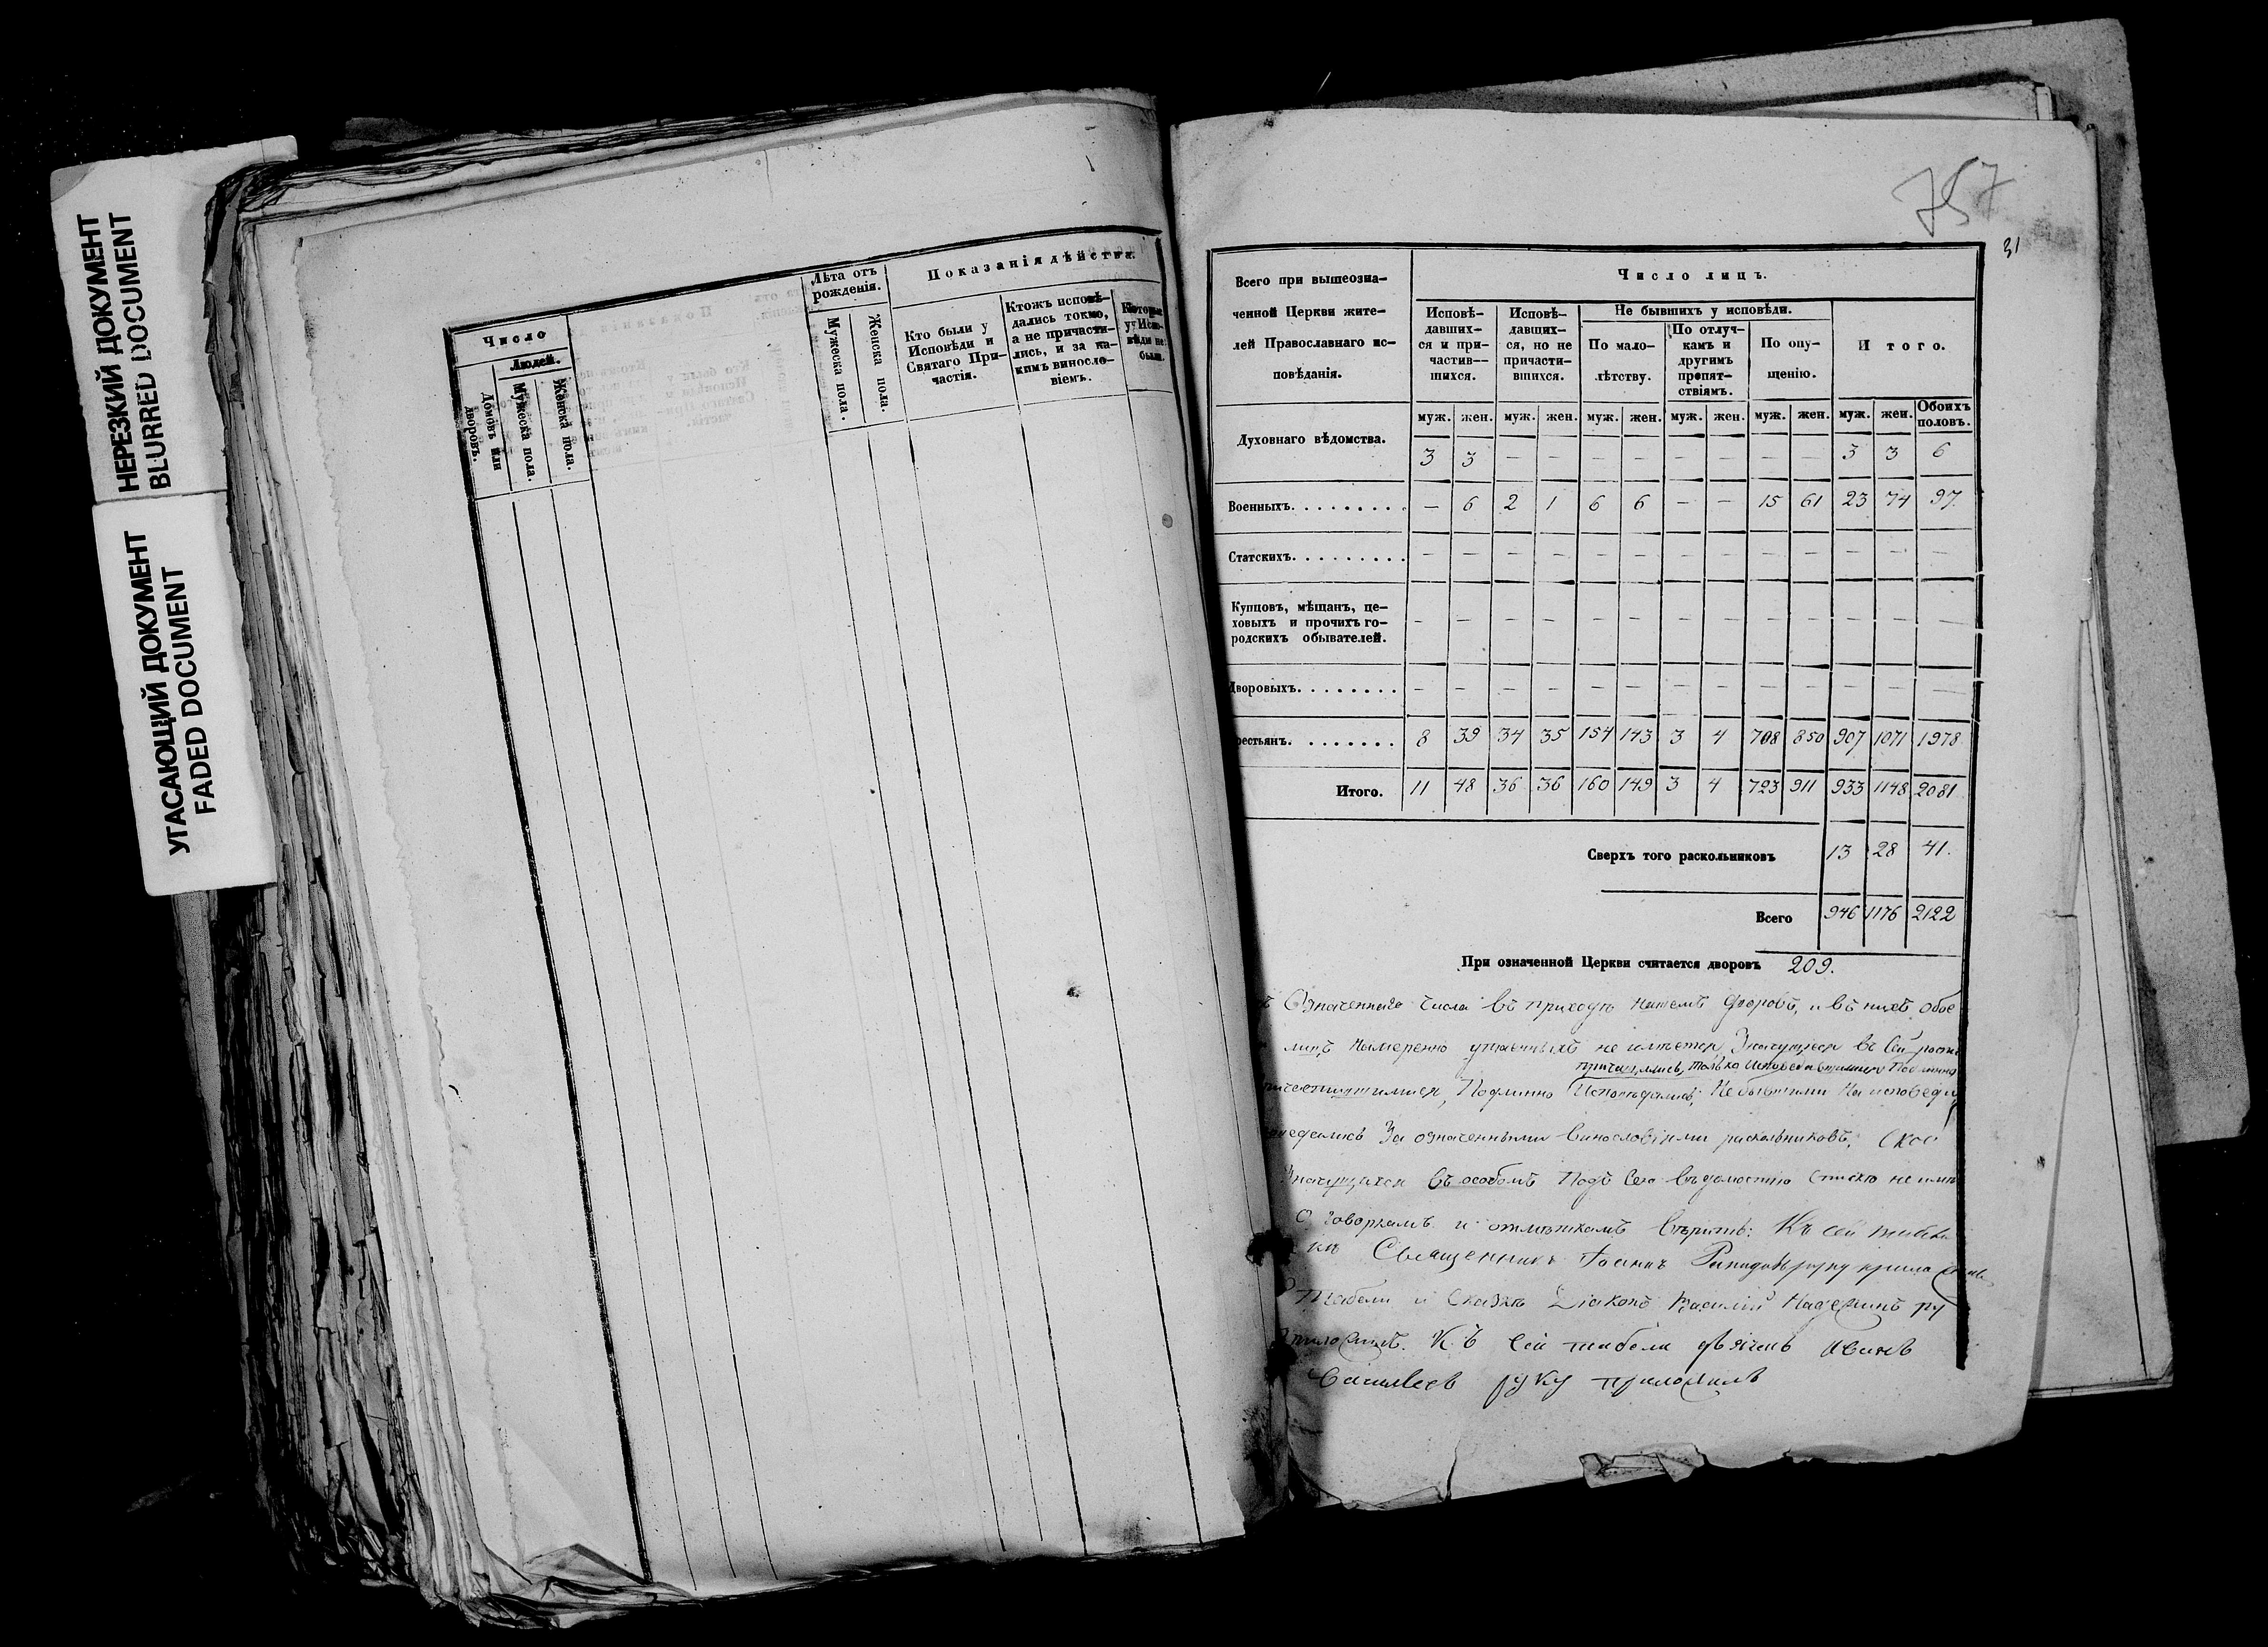 НЕРЕЗКИЙ ДОКУМЕНТ
BLURRED DOCUMENT
УГАСАЮЩИЙ ДОКУМЕНТ
FADED DOCUMENT
Число
Людей.
Домовъ или дворовъ.
Мужеска пола.
Женска пола.
Лѣта отъ рожденія.
Мужеска пола.
Женска пола.
Показанія дѣйства.
Кто были у
Исповѣди и
Святаго При-
частія.
Ктожъ исповѣ-
дались токмо,
а не причасти-
лись, и за ка-
кимъ винословіемъ.
Которые
у Испо-
вѣди не
были.
757
31
Всего при вышеозна-
ченной Церкви жите-
лей Православнаго ис-
повѣданія.
Число лицъ.
Исповѣ-
давших-
ся и при-
частив-
шихся.
Исповѣ-
давших-
ся, но не
причасти-
вшихся.
Не бывшихъ у исповѣди.
По мало-
лѣтству.
По отлуч-
камъ и
другимъ
препят-
ствіямъ.
По опу-
щенію.
Итого.
муж. жен. муж. жен. муж. жен. муж. жен. муж. жен. муж. жен. Обоихъ половъ.
Духовнаго вѣдомства. 3 3 — — — — — — — — 3 3 6
Военныхъ. — 6 2 1 6 6 — — 15 61 23 74 97
Статскихъ. — — — — — — — — — — — — —
Купцовъ, мѣщанъ, це-
ховыхъ и прочихъ го-
родскихъ обывателей. — — — — — — — — — — — — —
Дворовыхъ. — — — — — — — — — — — — —
рестьянъ. 8 39 34 35 154 143 3 4 708 850 907 1071 1978
Итого. 11 48 36 36 160 149 3 4 723 911 933 1148 2081
Сверхъ того раскольниковъ 13 28 41.
Всего 946 1176 2122
При означенной Церкви считается дворовъ 209.
Означеннаго числа въ приходѣ нашемъ дворовъ, и въ нихъ обое
лицъ намеренно утаенныхъ не имѣется, Значущіеся въ Сей роспи
причащались, только исповедавшимися Подлинно
Подлинно Исповѣдались; Небывшими на исповеди
За означенными винословіями раскольниковъ,
Значущихся въ особомъ Подъ Сею вѣдомостію Списке не имѣ
оговоркамъ и отмѣткамъ вѣрить: Къ сей табели
Священникъ Іоаннъ руку приложилъ
Табели и Сказкѣ Діаконъ Василій ру
приложилъ. Къ Сей табели дьячекъ Иванъ
Васильевъ руку приложилъ